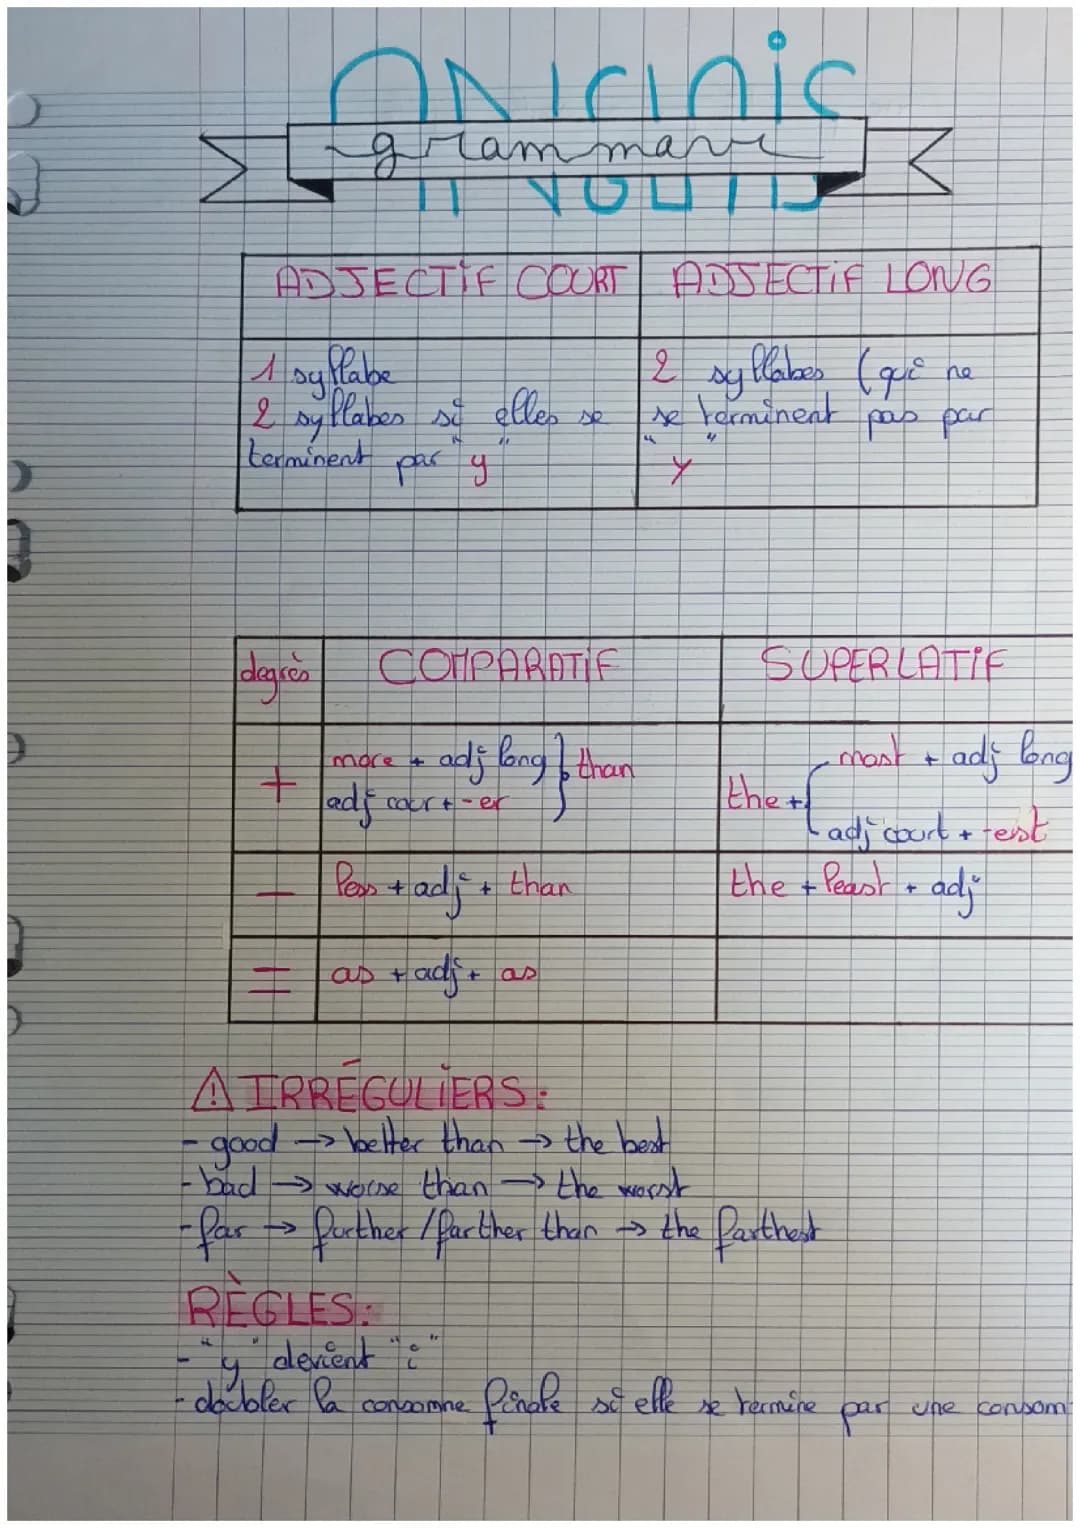 grammaire
ADJECTIF COURT
ADJECTIF LONG
1 syllabe
2 syllabes si elles se
terminent par "y"
2 syllabes (qui ne
se terminent pas par
"y"
degrès
COMPARATIF
SUPERLATIF
+
more + adj long } than
adj cour + -er
the + { most + adj long
adj court + -est
—
less + adj + than
the + least + adj
=
as + adj + as
⚠ IRRÉGULIERS:
- good → better than → the best
- bad → worse than → the worst
- far → further / farther than → the farthest
RÈGLES:
- "y" devient "i"
- doubler la consonne finale si elle se termine par une consom